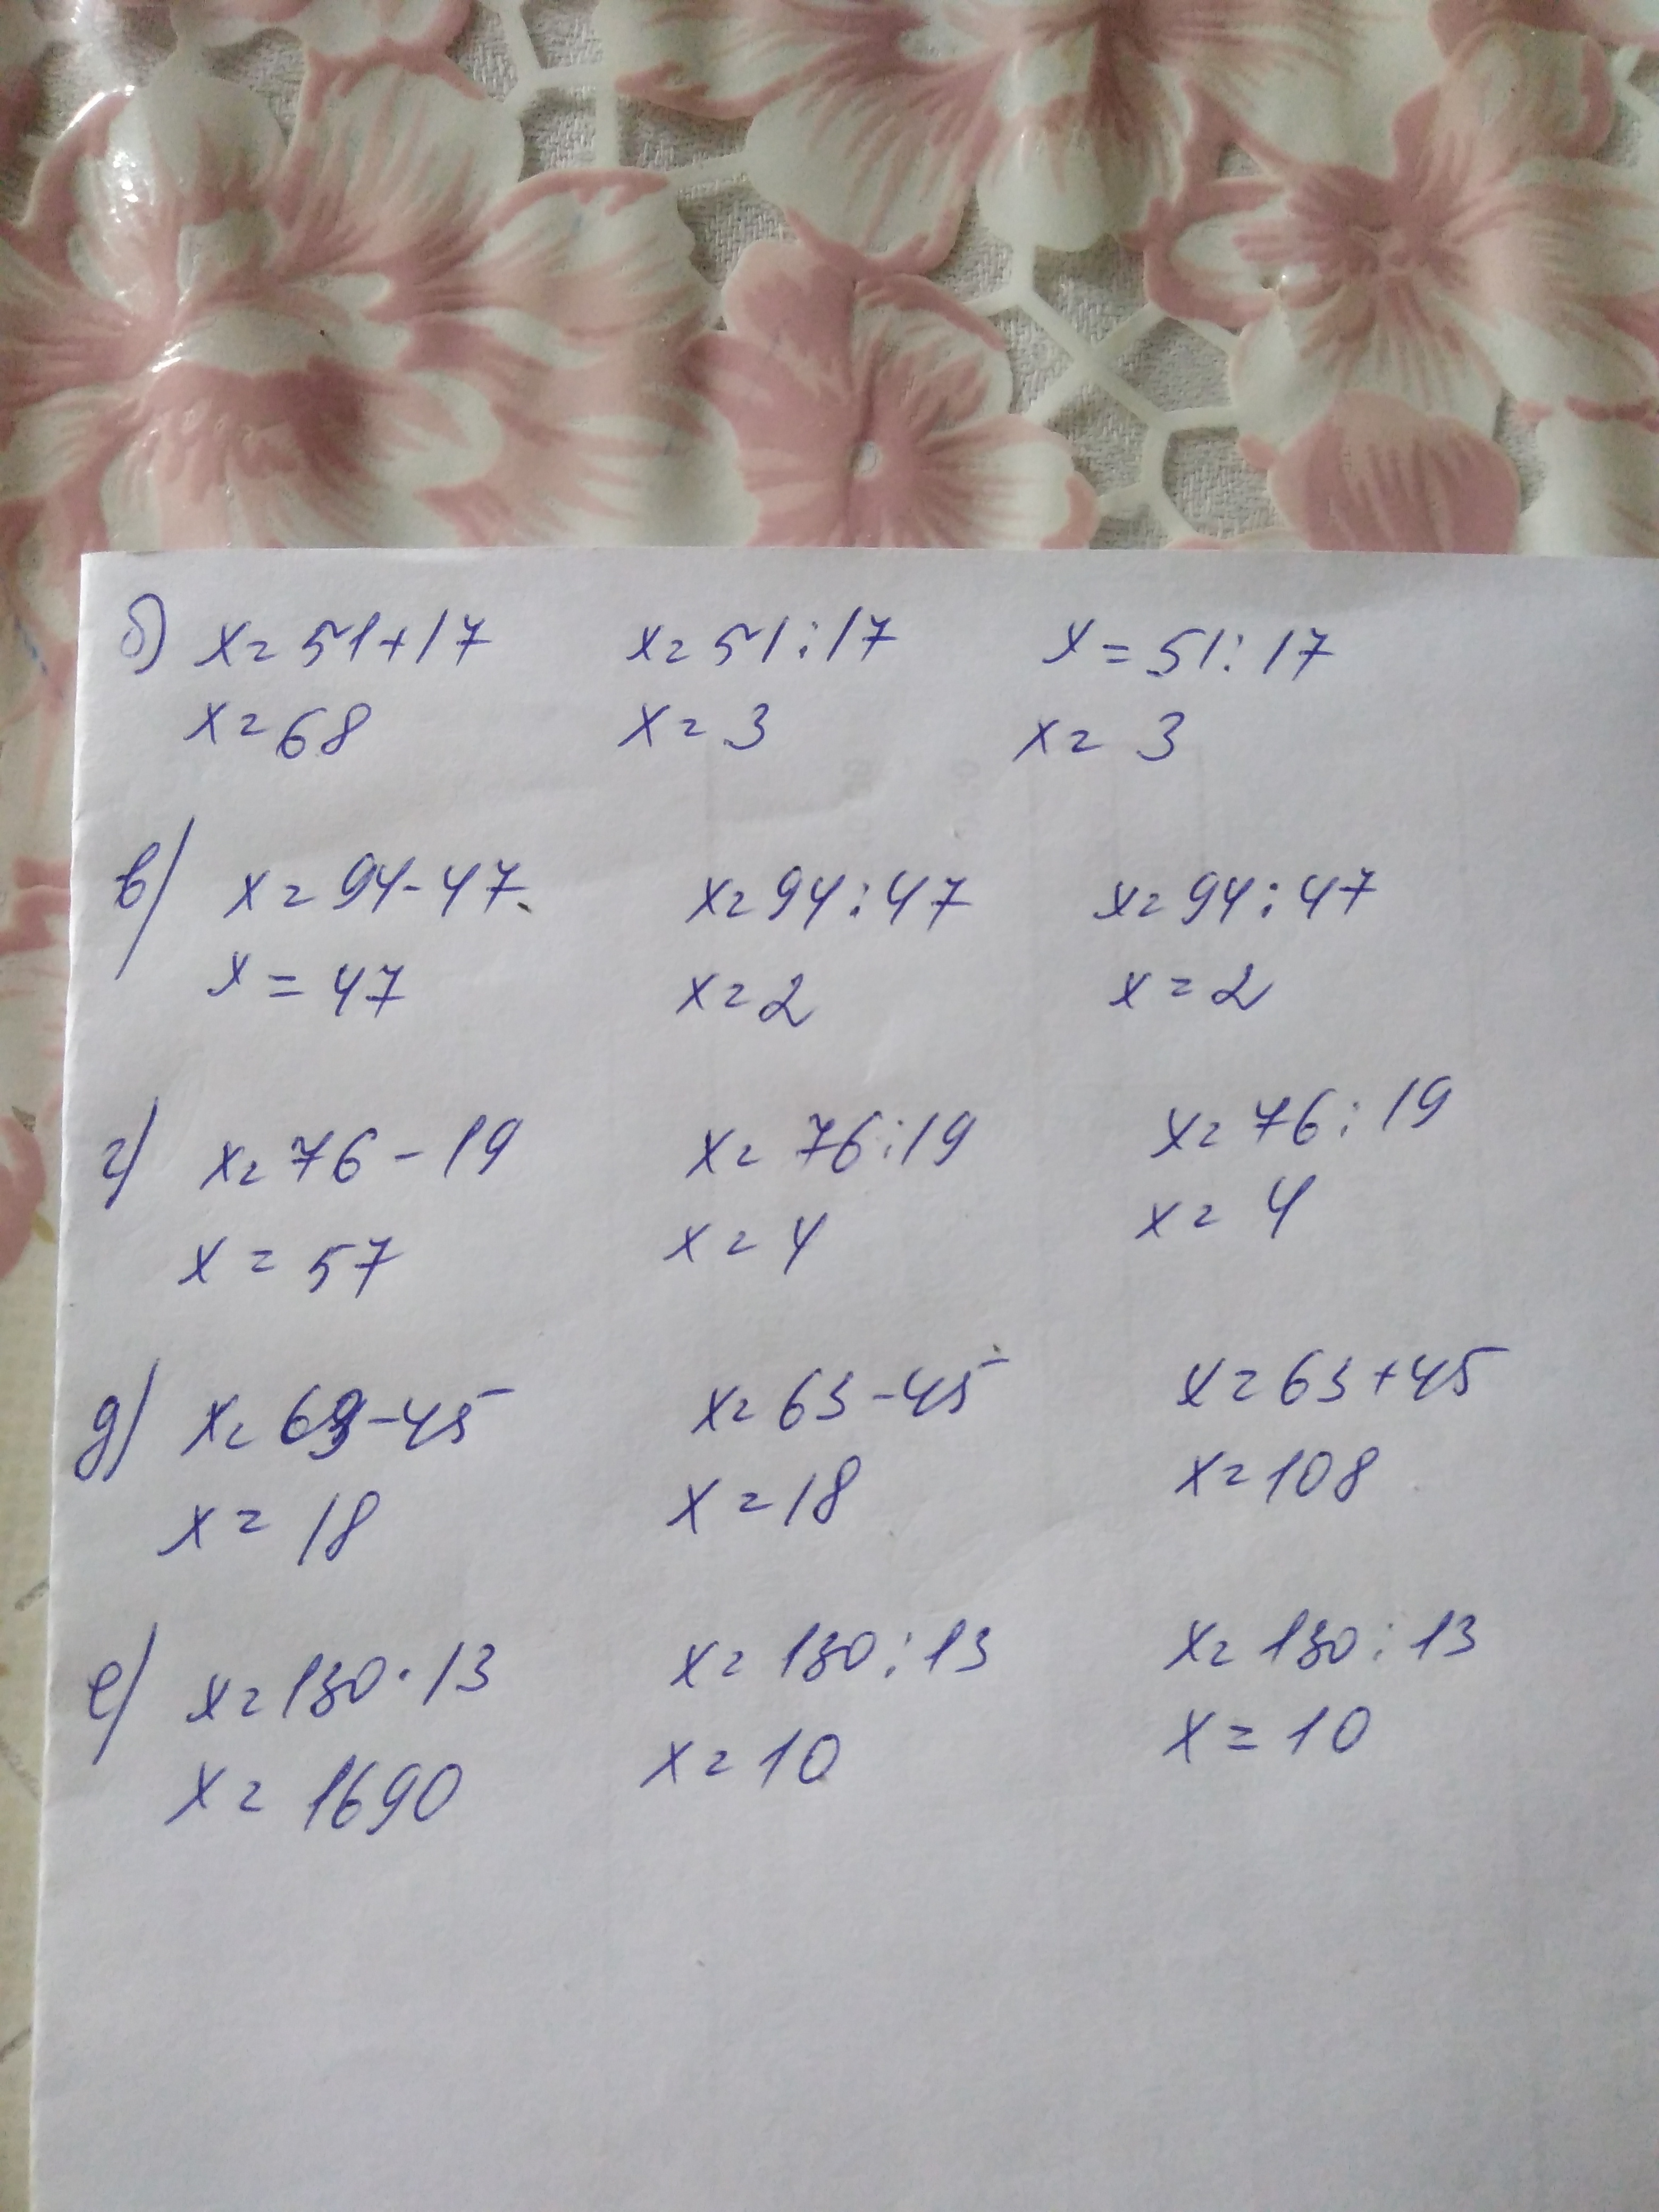 б) x=51+17 x=51:17 x=51:17
x=68 x=3 x=3
в) x=94-47 x=94:47 x=94:47
x=47 x=2 x=2
г) x=76-19 x=76:19 x=76:19
x=57 x=4 x=4
д) x=63-45 x=63-45 x=63+45
x=18 x=18 x=108
е) x=130·13 x=130:13 x=130:13
x=1690 x=10 x=10